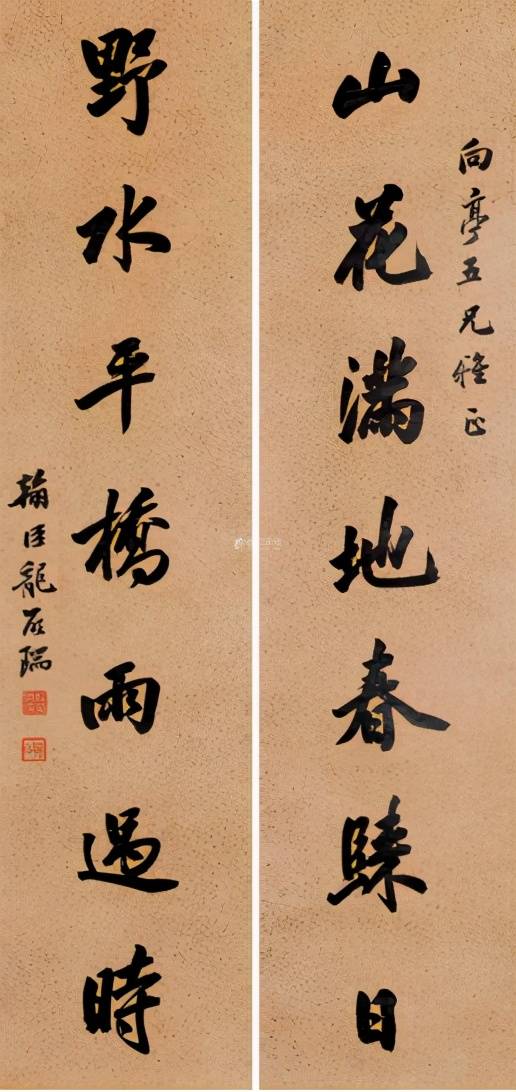 向亭五兄雅正
山花滿地春日
野水平橋雨過時
翰臣龍啟瑞